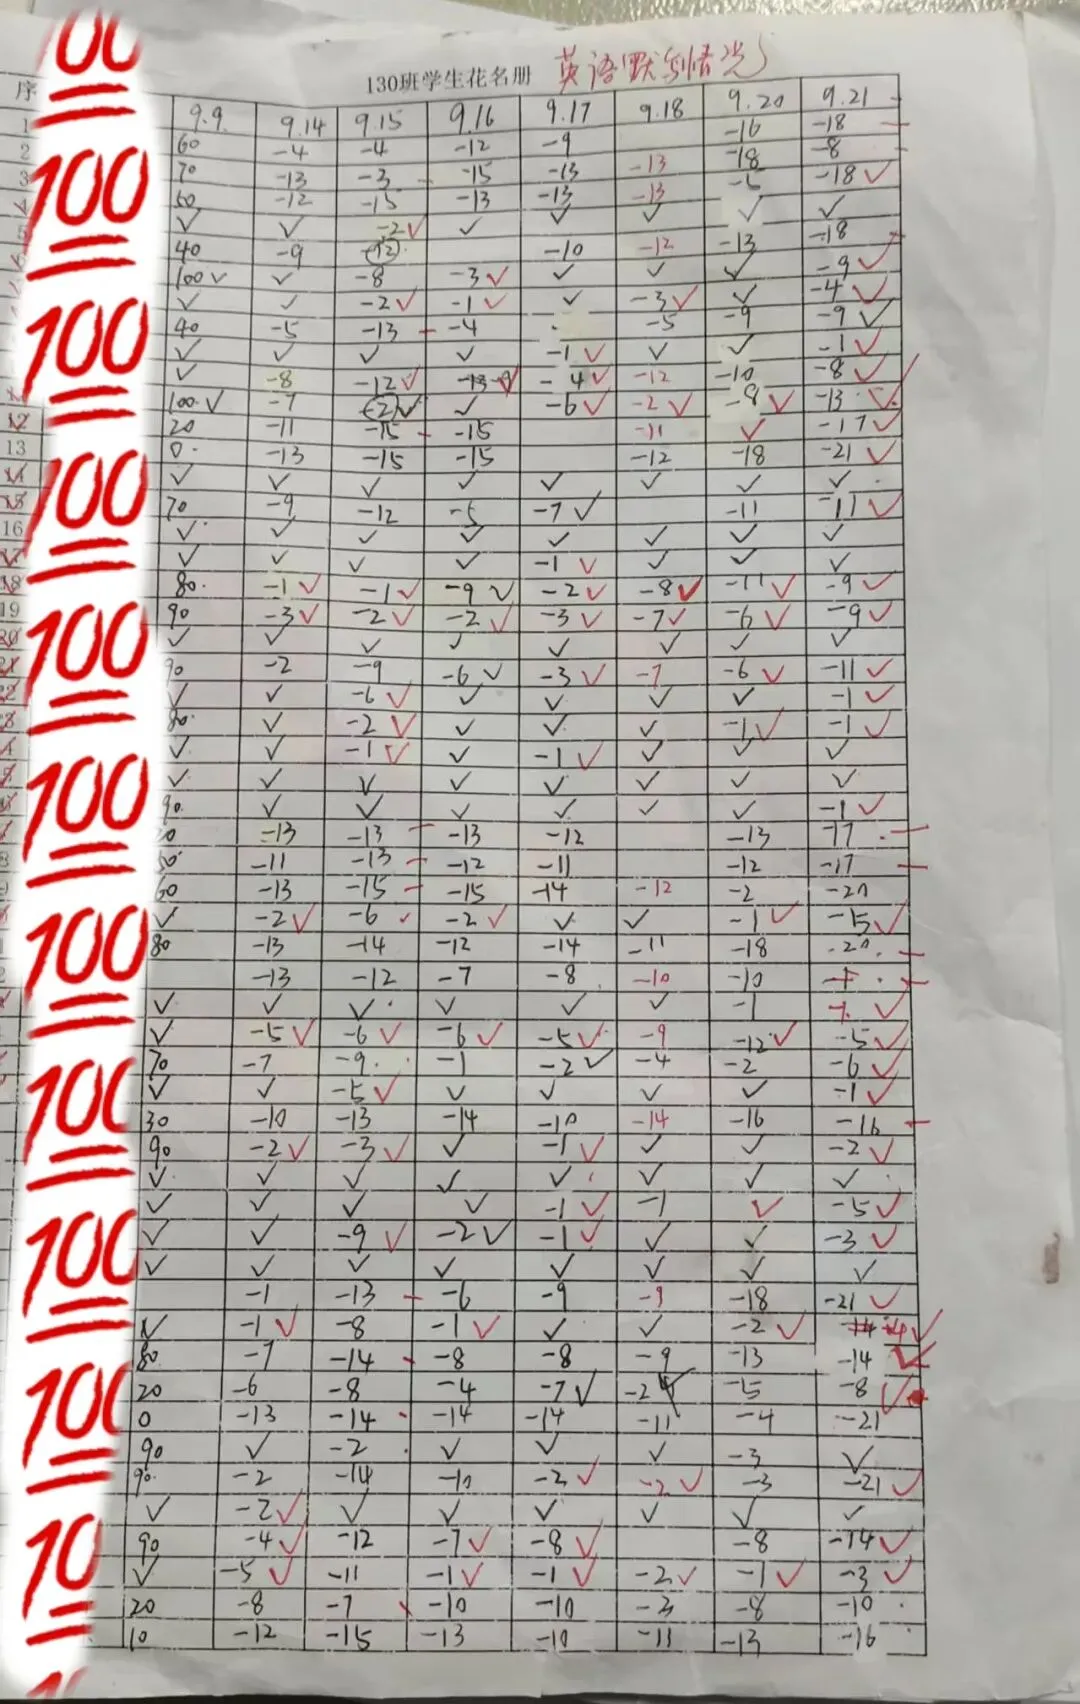 130班学生花名册 英语默写情况
序 9.9 9.14 9.15 9.16 9.17 9.18 9.20 9.21
1 60 -4 -4 -12 -9 -16 -18
2 70 -13 -3 -15 -13 -13 -18 -8
3 60 -12 -15 -13 -13 -13 -5 -18 ✓
✓ ✓ -2 ✓ ✓ ✓ ✓ ✓ ✓
40 -9 -12 -10 -12 -13 -18
100 ✓ ✓ -8 -3 ✓ ✓ ✓ ✓ -9 ✓
✓ ✓ -2 ✓ -1 ✓ ✓ -3 ✓ ✓ -4 ✓
40 -5 -13 -4 -5 -9 -9 ✓
✓ ✓ ✓ ✓ -1 ✓ ✓ ✓ -1 ✓
✓ -8 -12 ✓ -13 ✓ -4 ✓ -12 -10 -8 ✓
100 ✓ -7 -2 ✓ ✓ -6 ✓ -2 ✓ -9 ✓ -13 ✓
12 20 -11 -15 -15 -11 ✓ -17 ✓
13 0 -13 -15 -15 -12 -18 -21 ✓
14 ✓ ✓ ✓ ✓ ✓ ✓ ✓ ✓
15 70 -9 -12 -5 -7 ✓ -11 -11 ✓
16 ✓ ✓ ✓ ✓ ✓ ✓ ✓ ✓
✓ ✓ ✓ ✓ -1 ✓ ✓ ✓ ✓
18 80 -1 ✓ -1 ✓ -9 ✓ -2 ✓ -8 ✓ -11 ✓ -9 ✓
19 90 -3 ✓ -2 ✓ -2 ✓ -3 ✓ -7 ✓ -6 ✓ -9 ✓
20 ✓ ✓ ✓ ✓ ✓ ✓ ✓ ✓
21 90 -2 -9 -6 ✓ -3 ✓ -7 -6 ✓ -11 ✓
22 ✓ ✓ -6 ✓ ✓ ✓ ✓ ✓ -1 ✓
80 ✓ -2 ✓ ✓ ✓ ✓ -1 ✓ -1 ✓
✓ ✓ -1 ✓ ✓ -1 ✓ ✓ ✓ ✓
✓ ✓ ✓ ✓ ✓ ✓ ✓ ✓
90 ✓ ✓ ✓ ✓ ✓ ✓ -1 ✓
-13 -13 -13 -12 -13 -17
-11 -13 -12 -11 -12 -17
60 -13 -15 -15 -14 -12 -2 -20
✓ -2 ✓ -6 ✓ -2 ✓ ✓ ✓ -1 ✓ -15 ✓
80 -13 -14 -12 -14 -11 -18 -20
-13 -12 -7 -8 -10 -10
✓ ✓ ✓ ✓ ✓ ✓ -1 ✓
✓ -5 ✓ -6 ✓ -6 ✓ -5 ✓ -9 -12 ✓ -5 ✓
70 -7 -9 -1 -2 ✓ -4 -2 -6 ✓
✓ ✓ -5 ✓ ✓ ✓ ✓ ✓ -1 ✓
30 -10 -13 -14 -10 -14 -16 -16
90 -2 ✓ -3 ✓ ✓ -1 ✓ ✓ ✓ -2 ✓
✓ ✓ ✓ ✓ ✓ ✓ ✓ ✓
✓ ✓ ✓ ✓ -1 ✓ -1 ✓ -5 ✓
✓ ✓ -9 ✓ -2 ✓ -1 ✓ ✓ ✓ -3 ✓
✓ ✓ ✓ ✓ ✓ ✓ ✓ ✓
-1 -13 -6 -9 -9 -18 -21 ✓
✓ -1 ✓ -8 -1 ✓ ✓ ✓ -2 ✓ -4 ✓
80 -7 -14 -8 -8 -9 -13 -14 ✓
20 -6 -8 -4 -7 ✓ -2 -5 -8 ✓
0 -13 -14 -14 -14 -11 -4 -21
90 ✓ -2 ✓ ✓ ✓ -3 ✓
90 -2 -14 -10 -2 ✓ -2 ✓ -3 -21 ✓
✓ -2 ✓ ✓ ✓ ✓ ✓ ✓ ✓
90 -4 ✓ -12 -7 ✓ -8 ✓ -8 -14 ✓
✓ -5 ✓ -11 -1 ✓ -1 ✓ -2 ✓ -1 ✓ -3 ✓
20 -8 -7 -10 -10 -3 -8 -10
10 -12 -15 -13 -10 -11 -13 -16